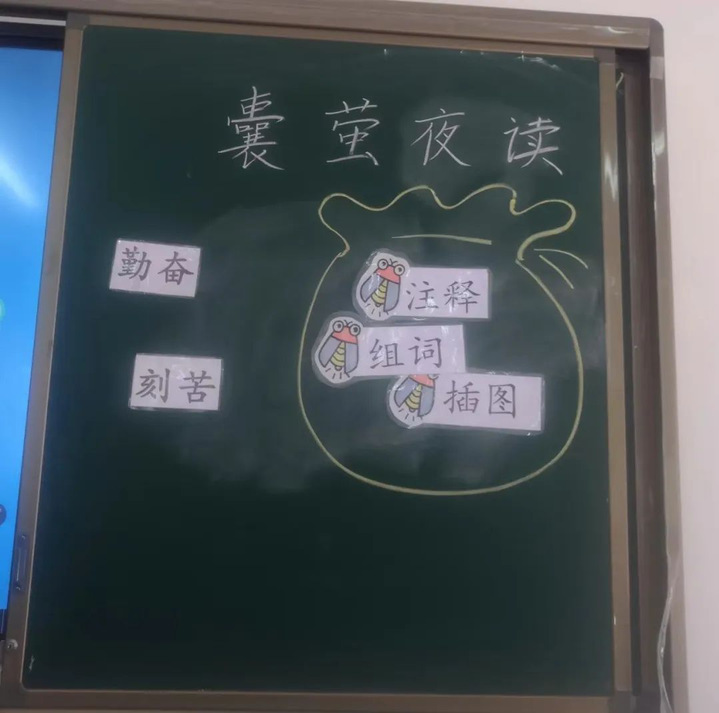 囊萤夜读
勤奋
刻苦
注释
组词
插图